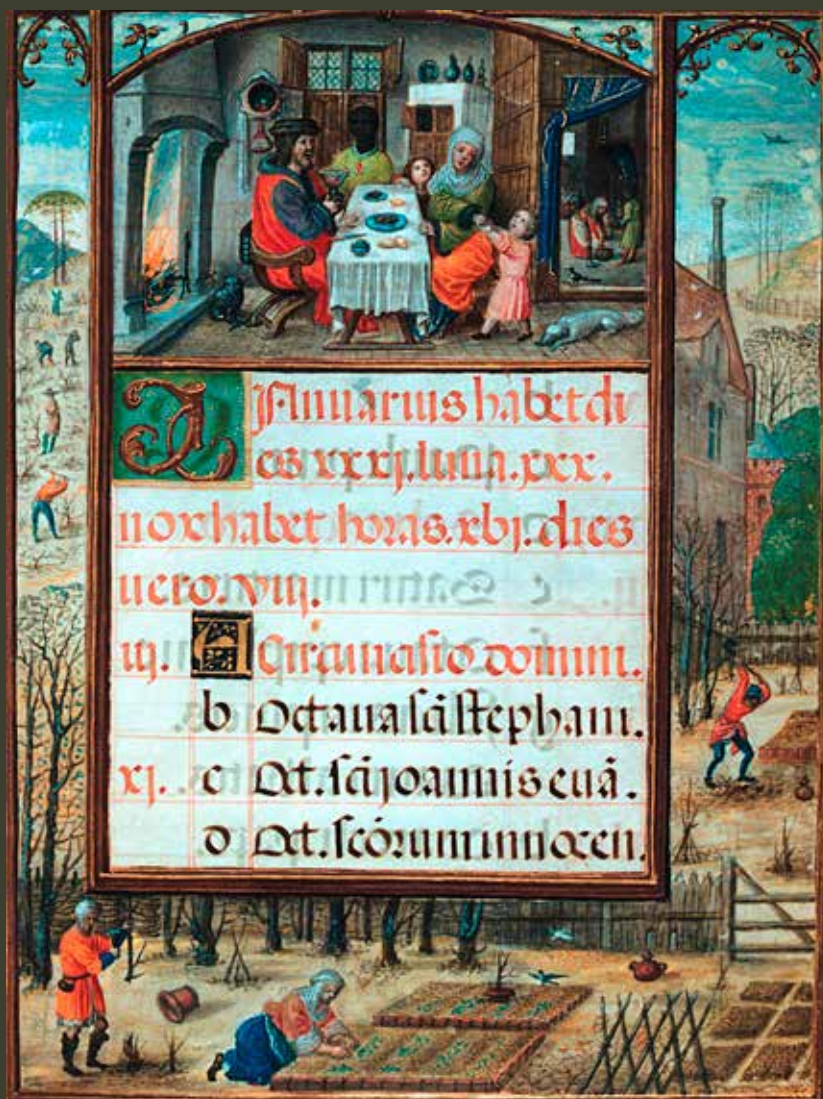 JAnuarius habet di
es xxxj. luna. xxx.
nox habet horas. xbj. dies
uero. viij.
iij. A Circuncisio domini.
b Octaua scī stephani.
xj. c Oct. scī joannis euā.
d Oct. scōrum innocen.